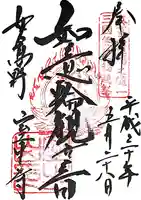 奉拝
平成三十年
五月二十八日
如意輪観世音
女高野
室生寺